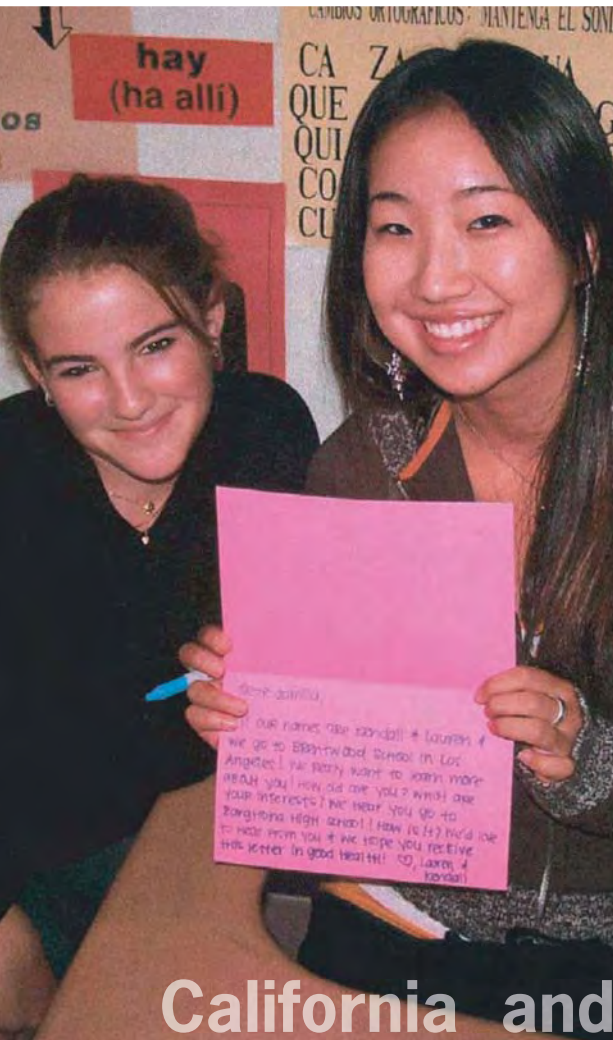 CAMBIOS ORTOGRÁFICOS: MANTENGA EL SONI
hay
(ha allí)
os
CA ZA UA
QUE G
QUI
CO
CU
! OUR names are Kendall &amp; Lauren &amp;
we go to Brentwood School in Los
Angeles! We really want to learn more
about you! How old are you? What are
your interests? We hear you go to
High School! How is it? We'd love
to hear from you &amp; we hope you receive
this letter in good health! ♡, Lauren &amp;
Kendall
California and